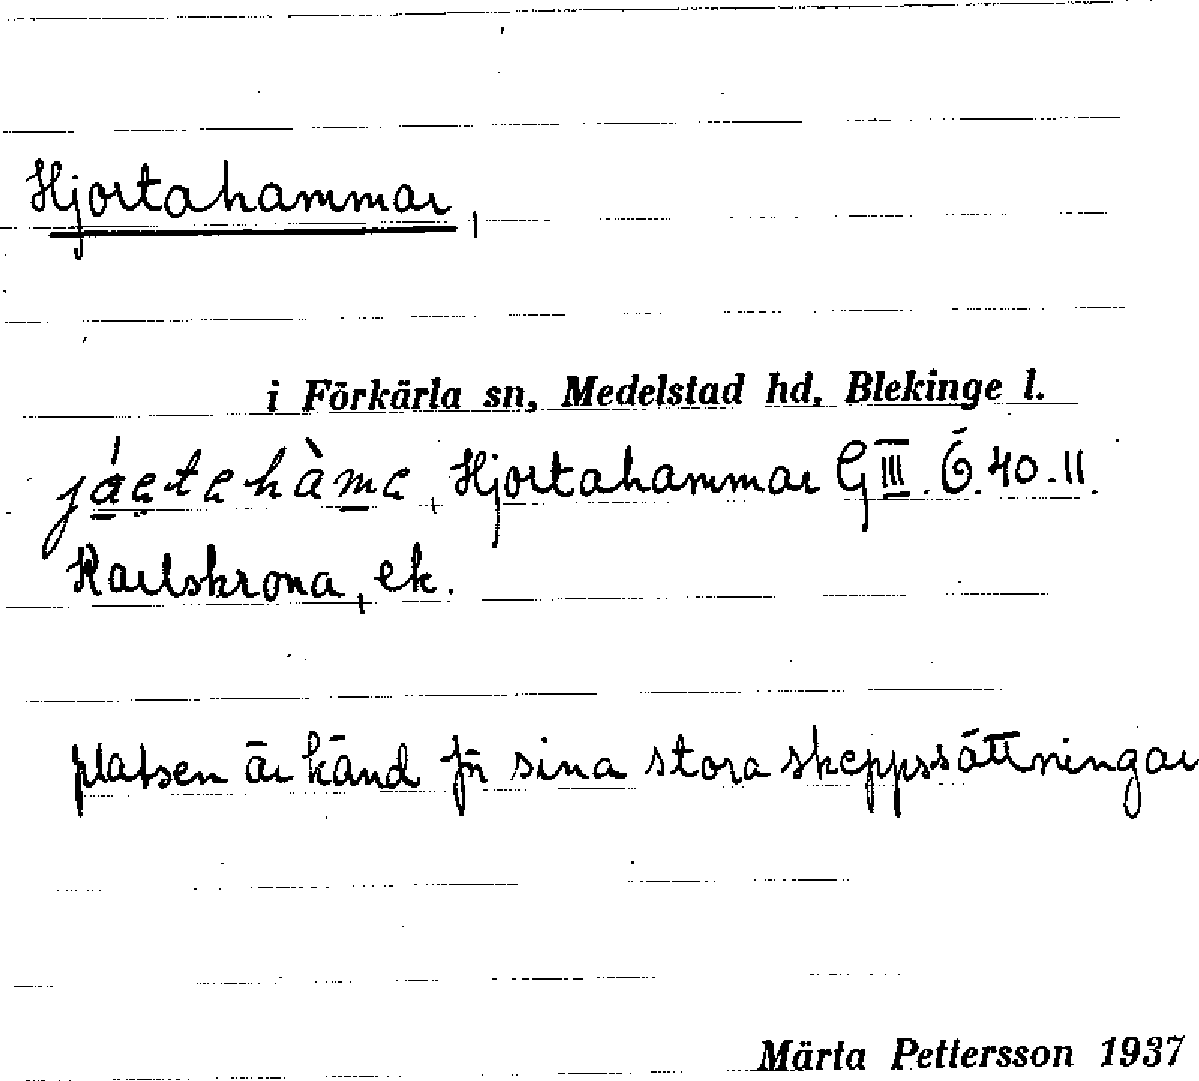 Hjortahammar,
i Förkärla sn, Medelstad hd, Blekinge l.
Hjortahammar G III. Ö. 40-11.
Karlskrona, ek.
platsen är känd för sina stora skeppssättningar
Märta Pettersson 1937